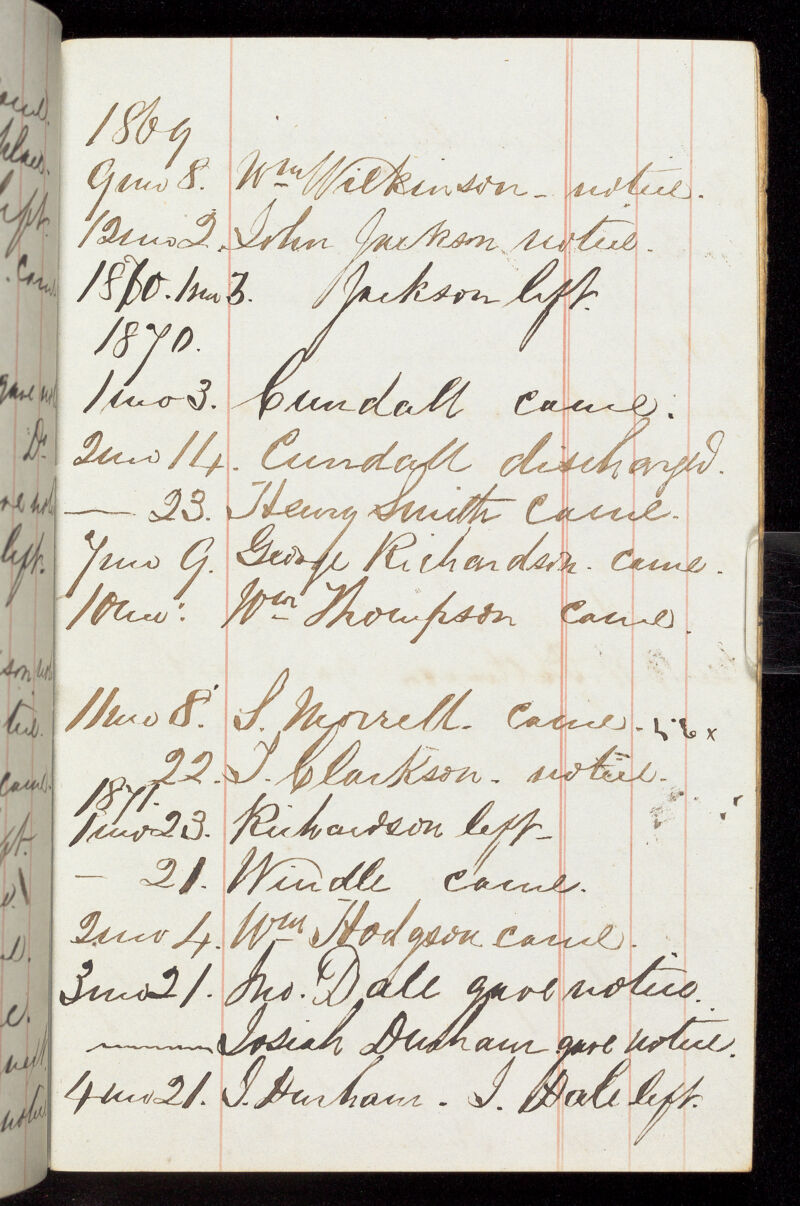 1869
9mo 8. Wm Wilkinson - notice.
12mo 2. John Jackson notice.
1870. 1mo 3. Jackson left.
1870.
1mo 3. Cundall came.
2mo 14. Cundall discharged.
— 23. Henry Smith came.
7mo 9. George Richardson. came.
10mo. Wm Thompson came.
11mo 8. S. Morrell. came.
22. J. Clarkson. notice.
1871.
1mo 23. Richardson left
— 21. Windle came.
2mo 4. Wm Hodgson came.
3mo 21. Jno. Dale gave notice.
Josiah Durham gave notice.
4mo 21. J. Durham. J. Dale left.